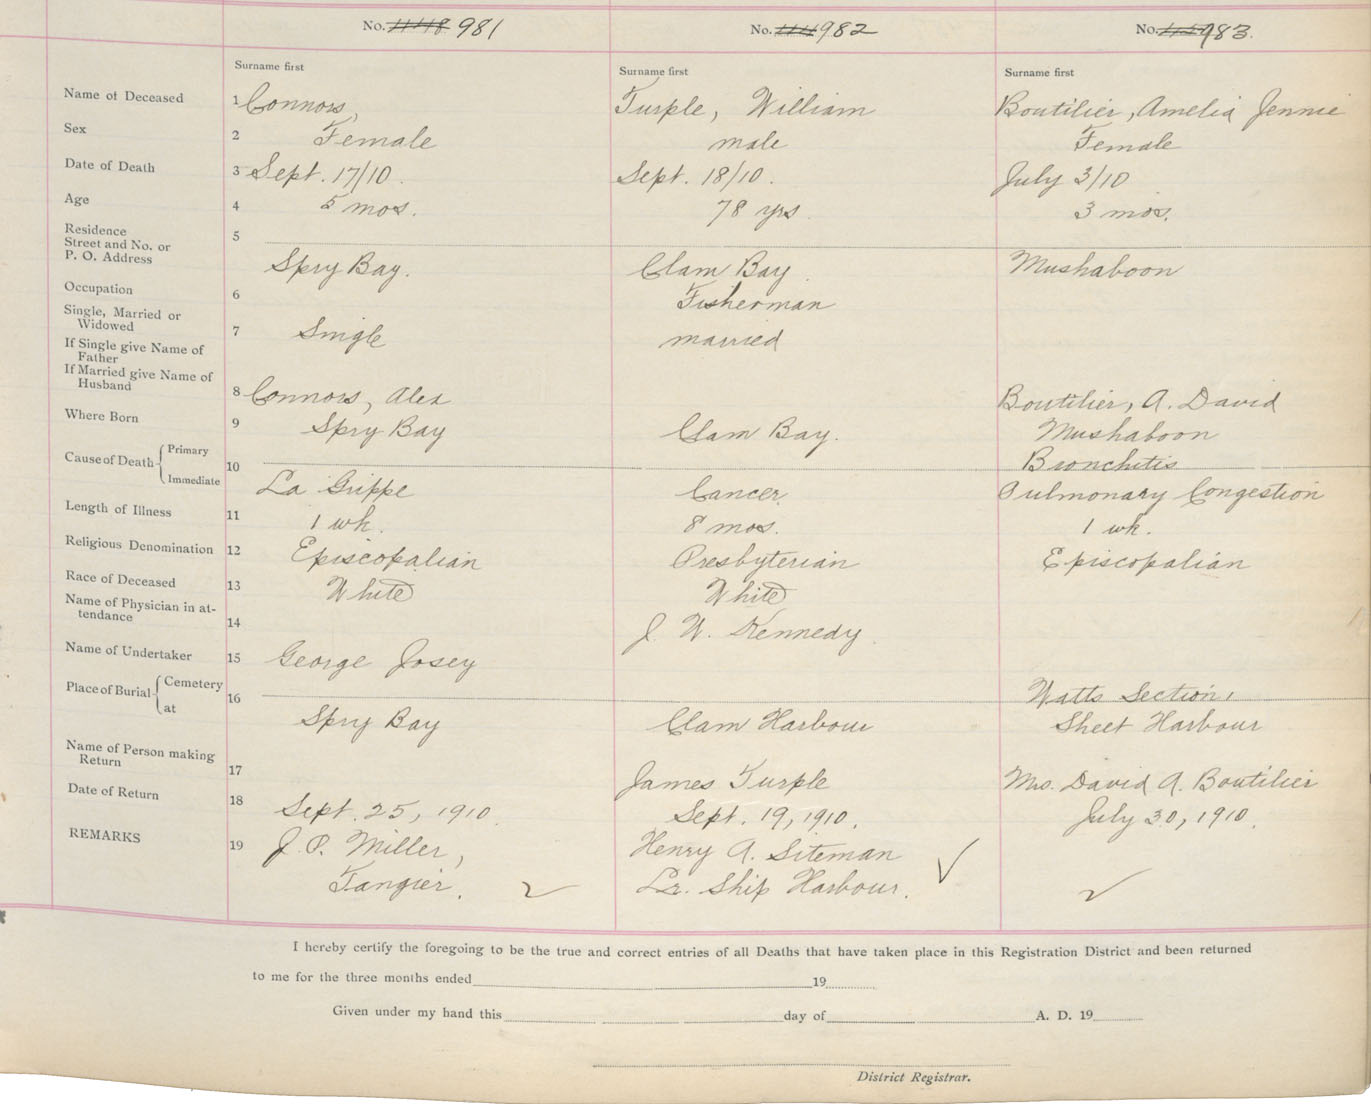 No. 981 No. 982 No. 983.
Surname first Surname first Surname first
Name of Deceased 1 Connors, Turple, William Boutilier, Amelia Jennie
Sex 2 Female male Female
Date of Death 3 Sept. 17/10. Sept. 18/10. July 3/10
Age 4 5 mos. 78 yrs. 3 mos.
Residence
Street and No. or
P. O. Address 5 Spry Bay. Clam Bay. Mushaboon
Occupation 6 Fisherman
Single, Married or
Widowed 7 Single married
If Single give Name of
Father
If Married give Name of
Husband 8 Connors, Alex Boutilier, A. David
Where Born 9 Spry Bay Clam Bay. Mushaboon
Cause of Death Primary Bronchitis
10 Immediate La Grippe Cancer Pulmonary Congestion
Length of Illness 11 1 wk. 8 mos. 1 wk.
Religious Denomination 12 Episcopalian Presbyterian Episcopalian
Race of Deceased 13 White White
Name of Physician in at-
tendance 14 J. W. Kennedy
Name of Undertaker 15 George Josey
Place of Burial Cemetery Watts Section,
16 at Spry Bay Clam Harbour Sheet Harbour
Name of Person making
Return 17 James Turple Mrs. David A. Boutilier
Date of Return 18 Sept. 25, 1910. Sept. 19, 1910. July 30, 1910.
REMARKS 19 J. P. Miller, Henry A. Siteman
Tangier. Lr. Ship Harbour.
I hereby certify the foregoing to be the true and correct entries of all Deaths that have taken place in this Registration District and been returned
to me for the three months ended 19
Given under my hand this day of A. D. 19
District Registrar.